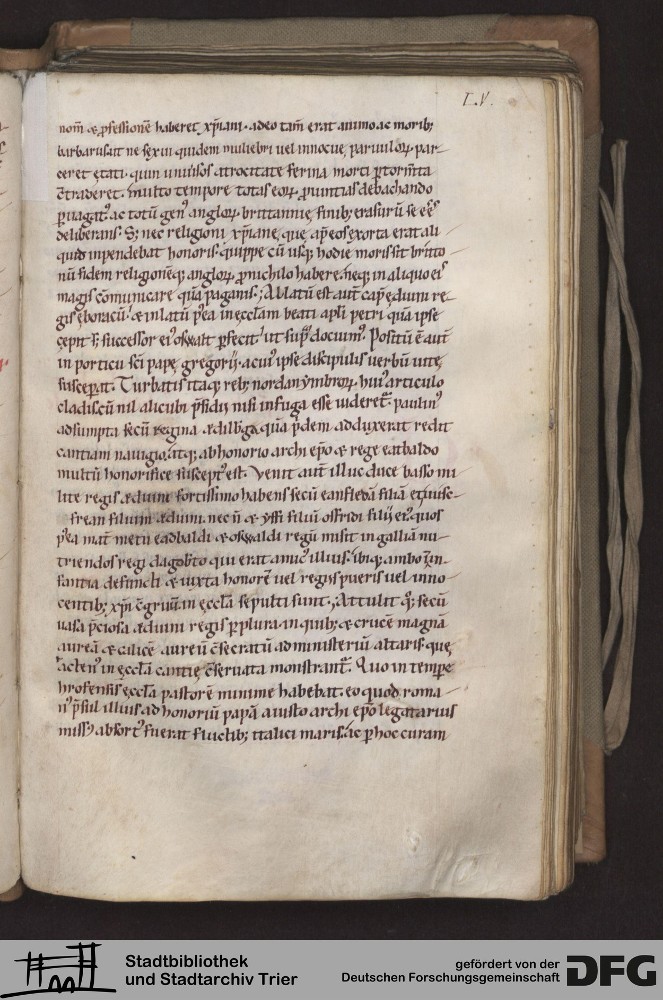 L.V.
nom̄ & ꝓfessionē haberet xp̄iani · adeo tam̄ erat animo ac morib;
barbarus · ut ne sexui quidem muliebri uel innocuę paruuloꝝ par-
ceret ętati · quin uniuersos atrocitate ferina morti ꝑ tormīta
c̄traderet · multo tempore totas eoꝝ ꝓuintias debachando
ꝑuagatꝰ ac totū genꝰ angloꝝ brittannię finib; erasurū se eē
deliberans · S; nec religioni xp̄iane, quę ap̄ eos exorta erat ali
quid inpendebat honoris · quippe cū usq; hodie moris sit britto-
nū fidem religionēq; angloꝝ ꝓ nichilo habere, neq; in aliquo eis
magis cōmunicare quā paganis · Ablatū est aut̄ cap̄ ęduini re-
gis ęboracū · & inlatū p̄ea in ęccl̄am beati apl̄i petri quā ipse
cępit s; successor eiꝰ oswalt perfecit ut sup̄ docuimꝰ. Positū ē aut̄
in porticu sc̄i pape gregorij · a cuiꝰ ipse discipulis uerbū uitę
susceperat. Turbatis itaq; reb; nordanymbroꝝ huiꝰ articulo
cladis · cū nil alicubi p̄sidij nisi in fuga esse uideret᷑ · paulinꝰ
adsumpta secū regina ædilb̄ga quā p̄dem adduxerat redit
cantiam nauigio. atq; ab honorio archiep̄o & rege eatbaldo
multū honorifice susceptꝰ est. Venit aut̄ illuc duce basso mi
lite regis æduini fortissimo habens secū eanfledā filiā et uusc-
frean filium æduini. nec n̄ & yffi filiū osfridi filij eiꝰ. quos
p̄ea mat̄ metu eadbaldi & oswaldi regū misit in galliā nu-
triendos regi dagob̄to qui erat amicꝰ illius. ibiq; ambo in in-
fantia defuncti & iuxta honorē uel regiis pueris uel inno-
centib; xp̄i c̄gruū in ęccl̄a sepulti sunt. Attulit q; secū
uasa p̄ciosa æduini regis ꝑplura in quib; & crucē magnā
aureā & calicē aureū c̄secratū ad ministeriū altaris. quę
actenꝰ in ęccl̄a cantię c̄seruata monstrant᷑. Quo in tempe
hrofensis ęccl̄a pastorē minime habebat. eo quod roma-
nꝰ p̄sul illius. ad honoriū papā a iusto archiep̄o legatarius
missꝰ absortꝰ fuerat fluctib; italici maris. ac ꝑ hoc curam
Stadtbibliothek
und Stadtarchiv Trier
gefördert von der
Deutschen Forschungsgemeinschaft
DFG